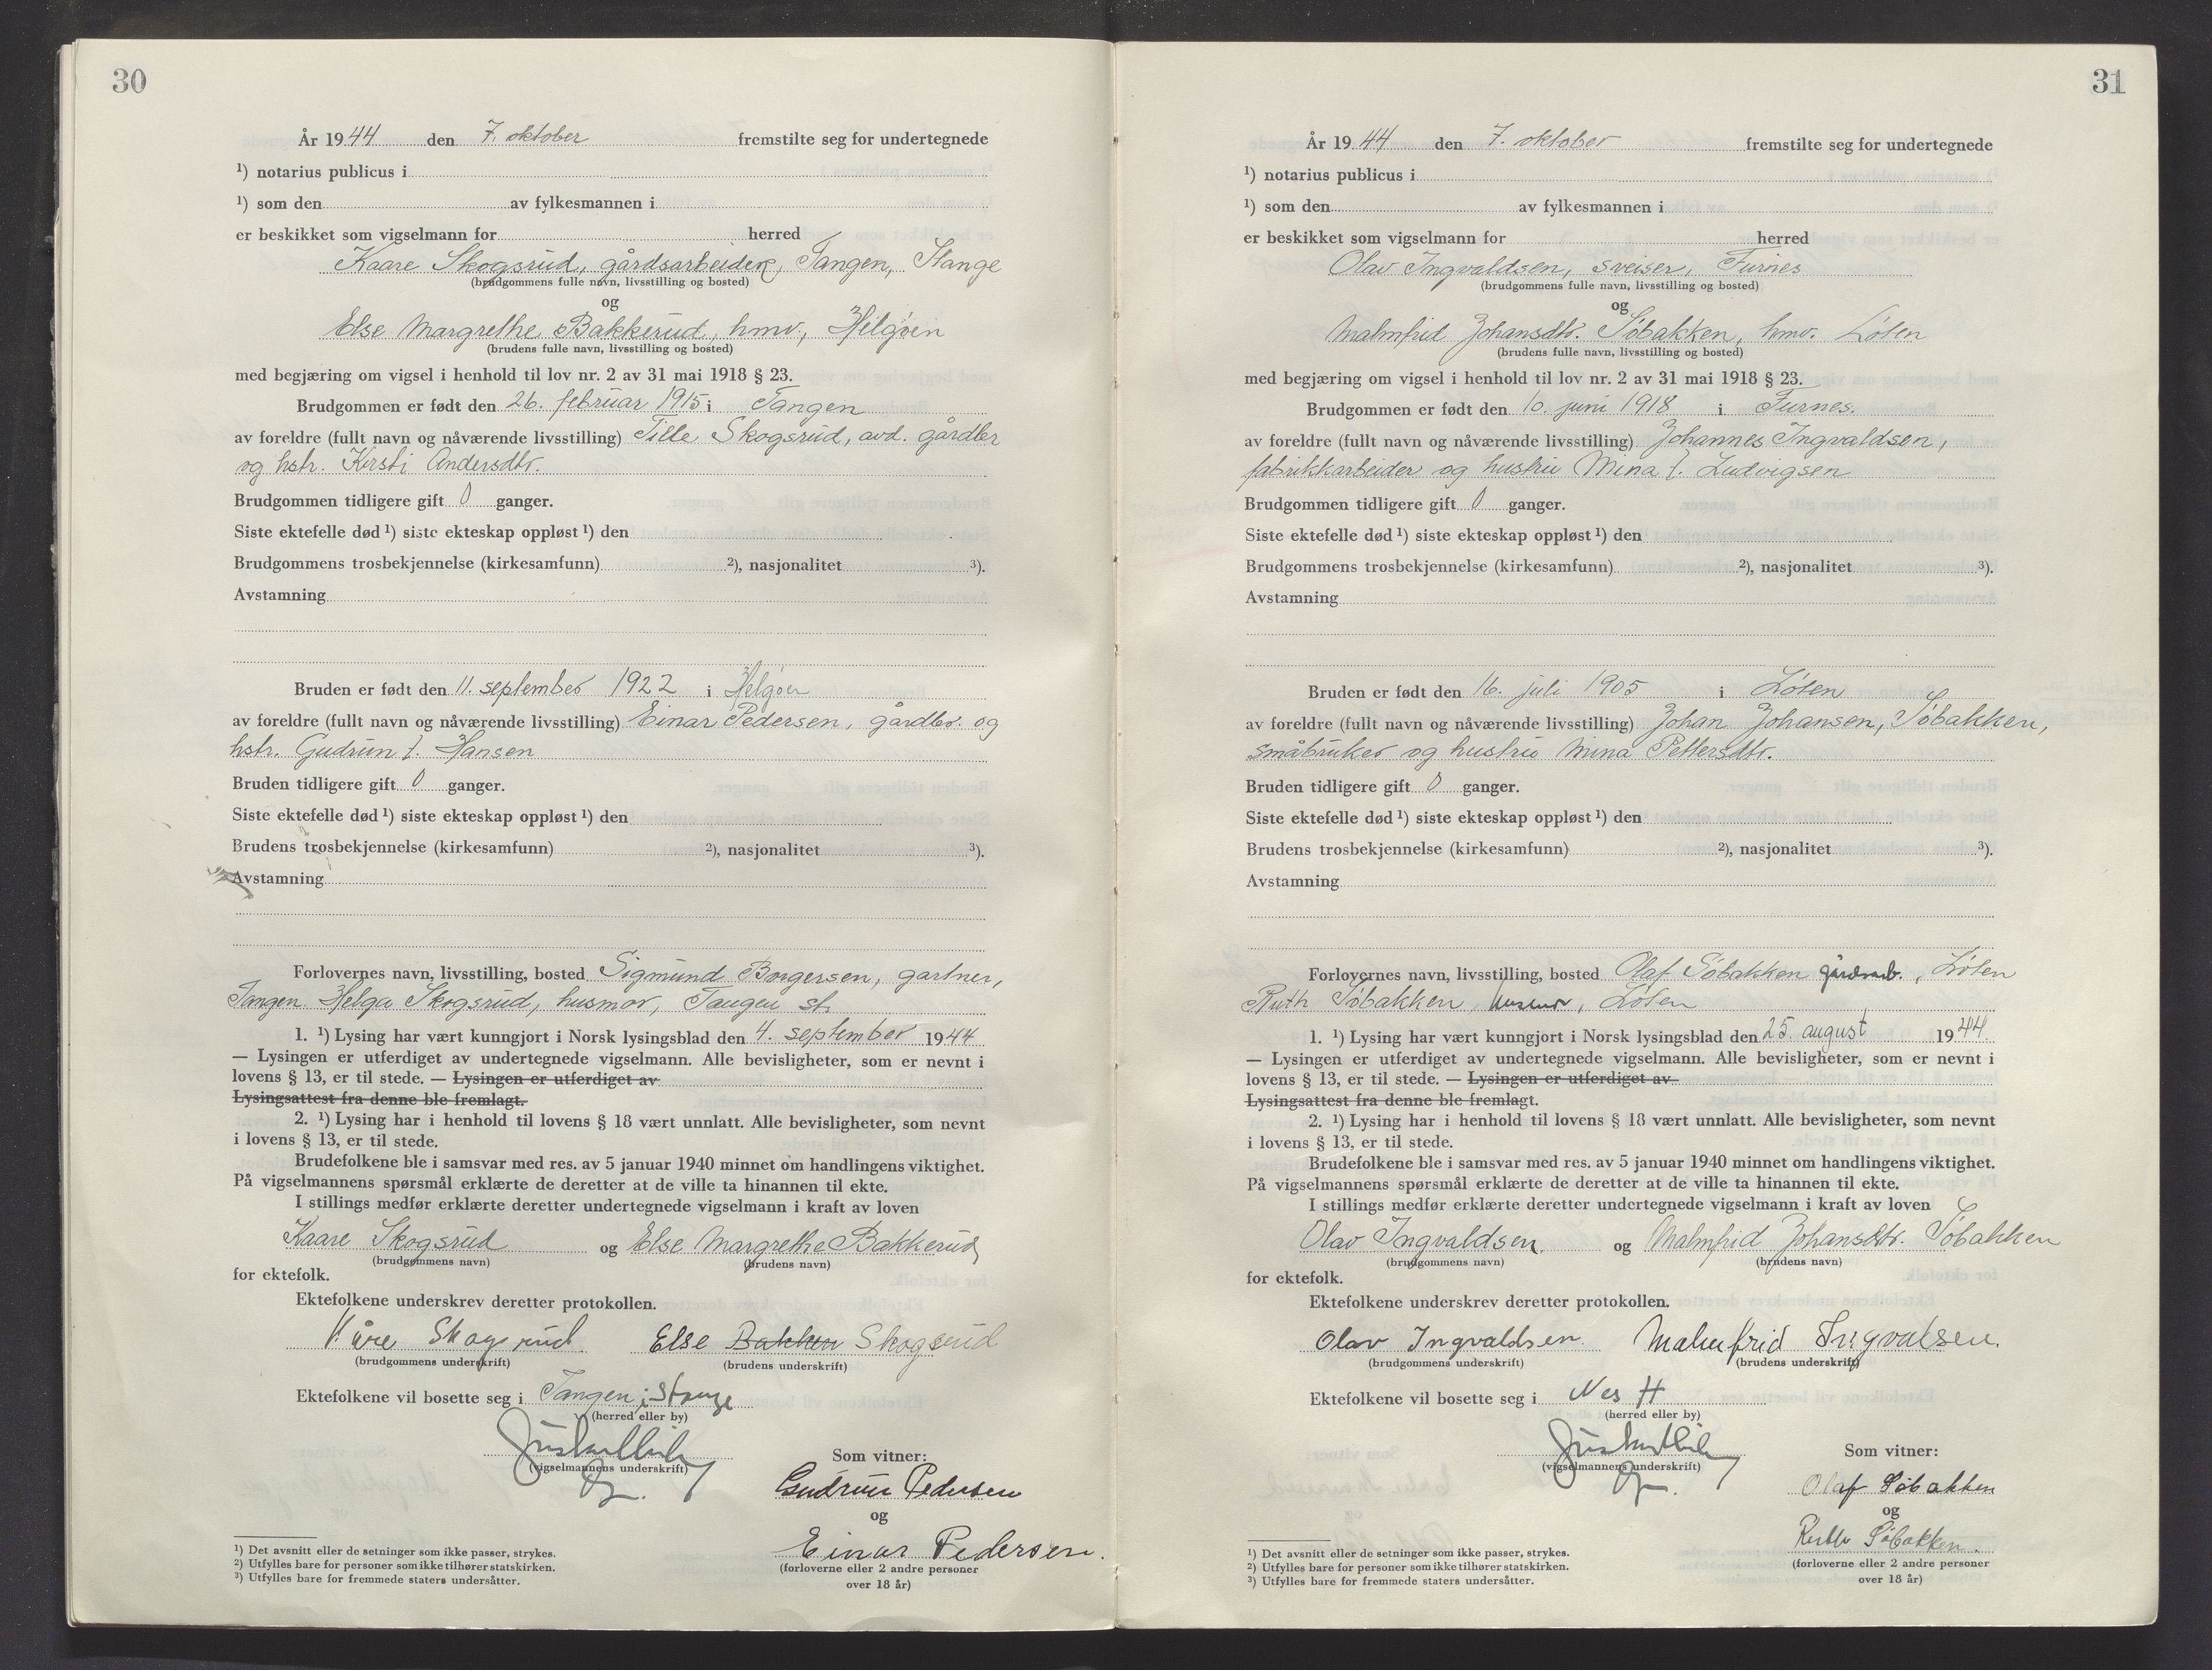 30
År 1944 den 7. oktober fremstilte seg for undertegnede
¹) notarius publicus i
¹) som den av fylkesmannen i
er beskikket som vigselmann for herred
Kaare Skogsrud, gårdsarbeider, Tangen, Stange
(brudgommens fulle navn, livsstilling og bosted)
og
Else Margrethe Bakkerud, hmv., Helgøen
(brudens fulle navn, livsstilling og bosted)
med begjæring om vigsel i henhold til lov nr. 2 av 31 mai 1918 § 23.
Brudgommen er født den 26. februar 1915 i Tangen
av foreldre (fullt navn og nåværende livsstilling) Tille Skogsrud, avd. gårdbr
og hstr. Kersti Andersdtr.
Brudgommen tidligere gift 0 ganger.
Siste ektefelle død ¹) siste ekteskap oppløst ¹) den
Brudgommens trosbekjennelse (kirkesamfunn) ²), nasjonalitet ³).
Avstamning
Bruden er født den 11. september 1922 i Helgøen
av foreldre (fullt navn og nåværende livsstilling) Einar Pedersen, gårdbr. og
hstr. Gudrun f. Hansen
Bruden tidligere gift 0 ganger.
Siste ektefelle død ¹) siste ekteskap oppløst ¹) den
Brudens trosbekjennelse (kirkesamfunn) ²), nasjonalitet ³).
Avstamning
Forlovernes navn, livsstilling, bosted Sigmund Borgersen, gartner,
Tangen. Helga Skogsrud, husmor, Tangen st.
1. ¹) Lysing har vært kunngjort i Norsk lysingsblad den 4. september 1944
— Lysingen er utferdiget av undertegnede vigselmann. Alle bevisligheter, som er nevnt i
lovens § 13, er til stede. — Lysingen er utferdiget av
Lysingsattest fra denne ble fremlagt.
2. ¹) Lysing har i henhold til lovens § 18 vært unnlatt. Alle bevisligheter, som nevnt
i lovens § 13, er til stede.
Brudefolkene ble i samsvar med res. av 5 januar 1940 minnet om handlingens viktighet.
På vigselmannens spørsmål erklærte de deretter at de ville ta hinannen til ekte.
I stillings medfør erklærte deretter undertegnede vigselmann i kraft av loven
Kaare Skogsrud og Else Margrethe Bakkerud
(brudgommens navn) (brudens navn)
for ektefolk.
Ektefolkene underskrev deretter protokollen.
Kåre Skogsrud Else Bakken Skogsrud
(brudgommens underskrift) (brudens underskrift)
Ektefolkene vil bosette seg i Tangen i Stange
(herred eller by)
(vigselmannens underskrift)
Som vitner:
Gudrun Pedersen
og
Einar Pedersen.
(forloverne eller 2 andre personer
over 18 år)
¹) Det avsnitt eller de setninger som ikke passer, strykes.
²) Utfylles bare for personer som ikke tilhører statskirken.
³) Utfylles bare for fremmede staters undersåtter.
31
År 1944 den 7. oktober fremstilte seg for undertegnede
¹) notarius publicus i
¹) som den av fylkesmannen i
er beskikket som vigselmann for herred
Olav Ingvaldsen, sveiser, Furnes
(brudgommens fulle navn, livsstilling og bosted)
og
Malmfrid Johansdtr. Søbakken, hmv. Løten
(brudens fulle navn, livsstilling og bosted)
med begjæring om vigsel i henhold til lov nr. 2 av 31 mai 1918 § 23.
Brudgommen er født den 10. juni 1918 i Furnes.
av foreldre (fullt navn og nåværende livsstilling) Johannes Ingvaldsen,
fabrikkarbeider og hustru Mina f. Ludvigsen
Brudgommen tidligere gift 0 ganger.
Siste ektefelle død ¹) siste ekteskap oppløst ¹) den
Brudgommens trosbekjennelse (kirkesamfunn) ²), nasjonalitet ³).
Avstamning
Bruden er født den 16. juli 1905 i Løten
av foreldre (fullt navn og nåværende livsstilling) Johan Johansen, Søbakken,
småbruker og hustru Mina Pettersdtr.
Bruden tidligere gift 0 ganger.
Siste ektefelle død ¹) siste ekteskap oppløst ¹) den
Brudens trosbekjennelse (kirkesamfunn) ²), nasjonalitet ³).
Avstamning
Forlovernes navn, livsstilling, bosted Olaf Søbakken gårdsarb., Løten
Ruth Søbakken, husmor, Løten
1. ¹) Lysing har vært kunngjort i Norsk lysingsblad den 25. august 1944.
— Lysingen er utferdiget av undertegnede vigselmann. Alle bevisligheter, som er nevnt i
lovens § 13, er til stede. — Lysingen er utferdiget av
Lysingsattest fra denne ble fremlagt.
2. ¹) Lysing har i henhold til lovens § 18 vært unnlatt. Alle bevisligheter, som nevnt
i lovens § 13, er til stede.
Brudefolkene ble i samsvar med res. av 5 januar 1940 minnet om handlingens viktighet.
På vigselmannens spørsmål erklærte de deretter at de ville ta hinannen til ekte.
I stillings medfør erklærte deretter undertegnede vigselmann i kraft av loven
Olav Ingvaldsen. og Malmfrid Johansdtr. Søbakken
(brudgommens navn) (brudens navn)
for ektefolk.
Ektefolkene underskrev deretter protokollen.
Olav Ingvaldsen. Malmfrid Ingvalsen.
(brudgommens underskrift) (brudens underskrift)
Ektefolkene vil bosette seg i Nes H
(herred eller by)
(vigselmannens underskrift)
Som vitner:
Olaf Søbakken
og
Ruth Søbakken.
(forloverne eller 2 andre personer
over 18 år)
¹) Det avsnitt eller de setninger som ikke passer, strykes.
²) Utfylles bare for personer som ikke tilhører statskirken.
³) Utfylles bare for fremmede staters undersåtter.